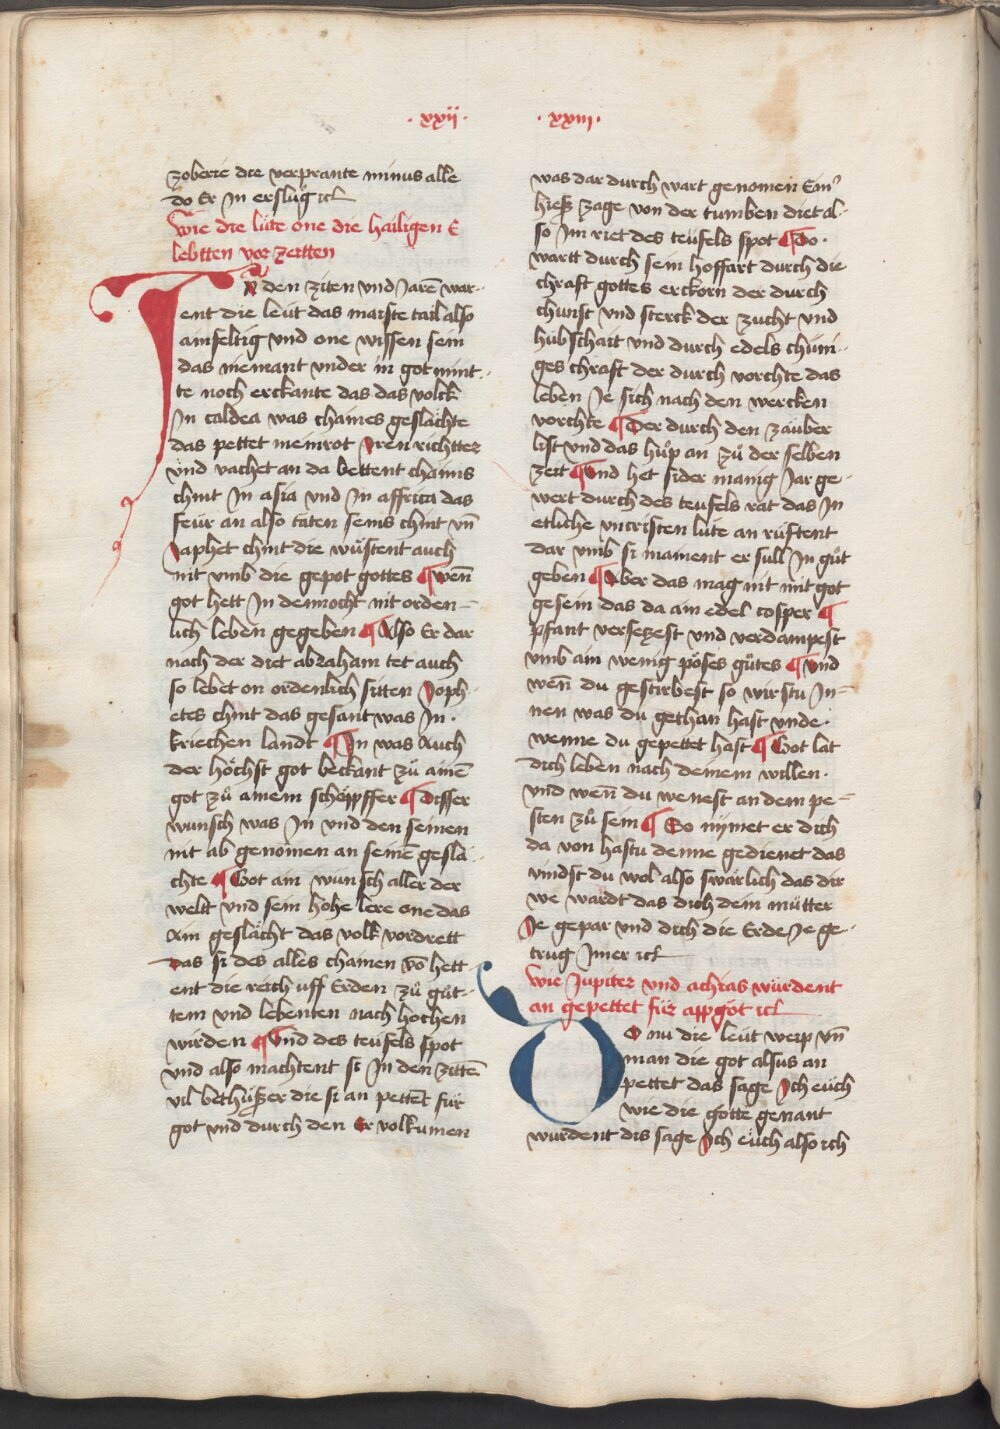 · xxij ·
· xxiij ·
zoberie die verprante minus alle
do Er Jn erslůg ic
Wie die lüte one die hailigen E
lebtten vor zeitten
JN den ziten vnd Jarē war-
ent die leüt das maiste tail also
ainfeltig vnd one wissen sein
das niemant vnder in got mint-
te noch erckante das das volck
Jn caldea was chaines geslächte
das pettet nemrot Jren richtter
vnd vachet an da bettent chaims
chint Jn asia vnd Jn affrica das
feür an also täten seins chint vn̄
Japhet chint die wůstent auch
nit vmb die gepot gottes ¶ wen̄
got hett Jn dennocht nit orden-
lich leben gegeben ¶ Also Er dar
nach der diet abraham tet auch
so lebet on ordenlich sitten Joph-
etes chint das gesant was Jn.
kriechen landt ¶ Jn was Auch
der höchst got beckant zů ainē
got zů ainem schöpffer ¶ Disser
wunsch was Jn vnd den seinen
nit ab genomen an seinē geslä-
chte ¶ Got ain wünsch aller der
welt vnd sein hohe lere one das
Ain geslächt das volk vordrett
das si des alles chamen vō hett
ent die reich uff Erden zů gůt-
tem vnd lebenten nach hochen
wirden ¶ Vnd des teüfels spot
vnd also machtent si Jn den zittē
vil bethüßer die si an pettēt für
got vnd durch den Er volkumen
was dar durch wart genomen Ein'
hieß zage von der tumben diet al-
so Jm riet des teüfels spot ¶ Do.
wartt durch sein hoffart durch die
chraft gottes erckorn der durch
chunst vnd sterck der zucht vnd
hübschait vnd durch edels chüni-
ges chraft der durch vorchte das
leben Je sich nach den wercken
vorchte ¶ Der durch den zauber
list vnd das hůp an zů der selben
zeit ¶ Vnd het sider manig Jar ge-
wert durch des teufels rat das Jn
etliche vncristen lüte an rüftent
dar vmb si mainent er süll Jn gůt
geben ¶ Aber das mag nit mit got
gesein das da ain edel cosper ¶
pfant versetzest vnd verdampest
vmb ain wenig pöses gůtes ¶ Vnd
wen̄ du gestirbest so wirstu Jn-
nen was du gethan hast vnde.
wenne du gepettet hast ¶ Got lat
dich leben nach deinem willen.
vnd wen̄ du wenest an dem pe-
sten zů sein ¶ So nymet er dich
da von hastu denne gedienet das
vindst du wol also swärlich das dir
we wardt das dich dein můtter
Je gepar vnd dich die Erde Je ge-
trug Jmer ic
Wie Jupiter vnd achias würdent
an gepettet für appgöt ic
DO nu die leüt werp vn̄
man die got alsus an
pettet das sage Jch eüch
wie die götte genant
wurdent dis sage Jch eüch also ich